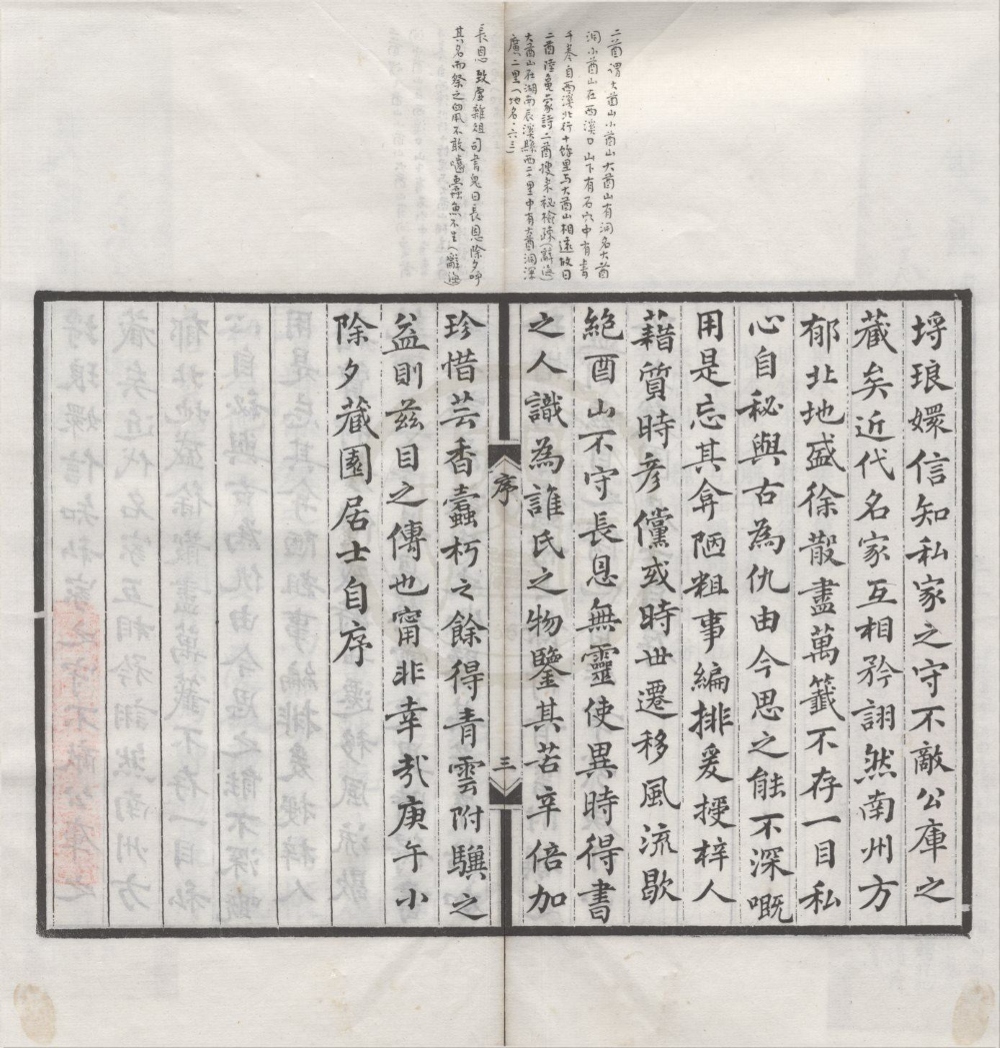 二酋謂大酋山小酋山大酋山有洞名大酋
洞小酋山在西溪口山下有石穴中有書
千卷自西溪北行十餘里与大酋山相連故曰
二酋陸龜蒙詩二酋搜來秘檢疎(辭海)
大酋山在湖南辰溪縣西二十里中有大酋洞深
廣二里(地名·六三)
長恩 致虛雜俎司書鬼曰長恩除夕呼
其名而祭之鼠不敢嚙蠹魚不生(辭海)
埒琅嬛信知私家之守不敵公庫之
藏矣近代名家互相矜詡然南州方
郁北地盛徐散盡萬籤不存一目私
心自秘與古為仇由今思之能不深嘅
用是忘其弇陋粗事編排爰授梓人
藉質時彥儻或時世遷移風流歇
絕酉山不守長恩無靈使異時得書
之人識為誰氏之物鑒其若辛倍加
序
三
珍惜芸香蠹朽之餘得青雲附驥之
益則茲目之傳也甯非幸哉庚午小
除夕藏園居士自序